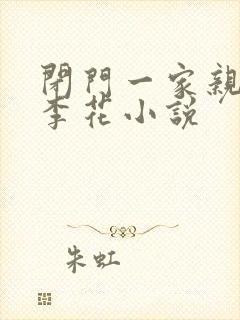 閉門一家親
李花小説
朱虹